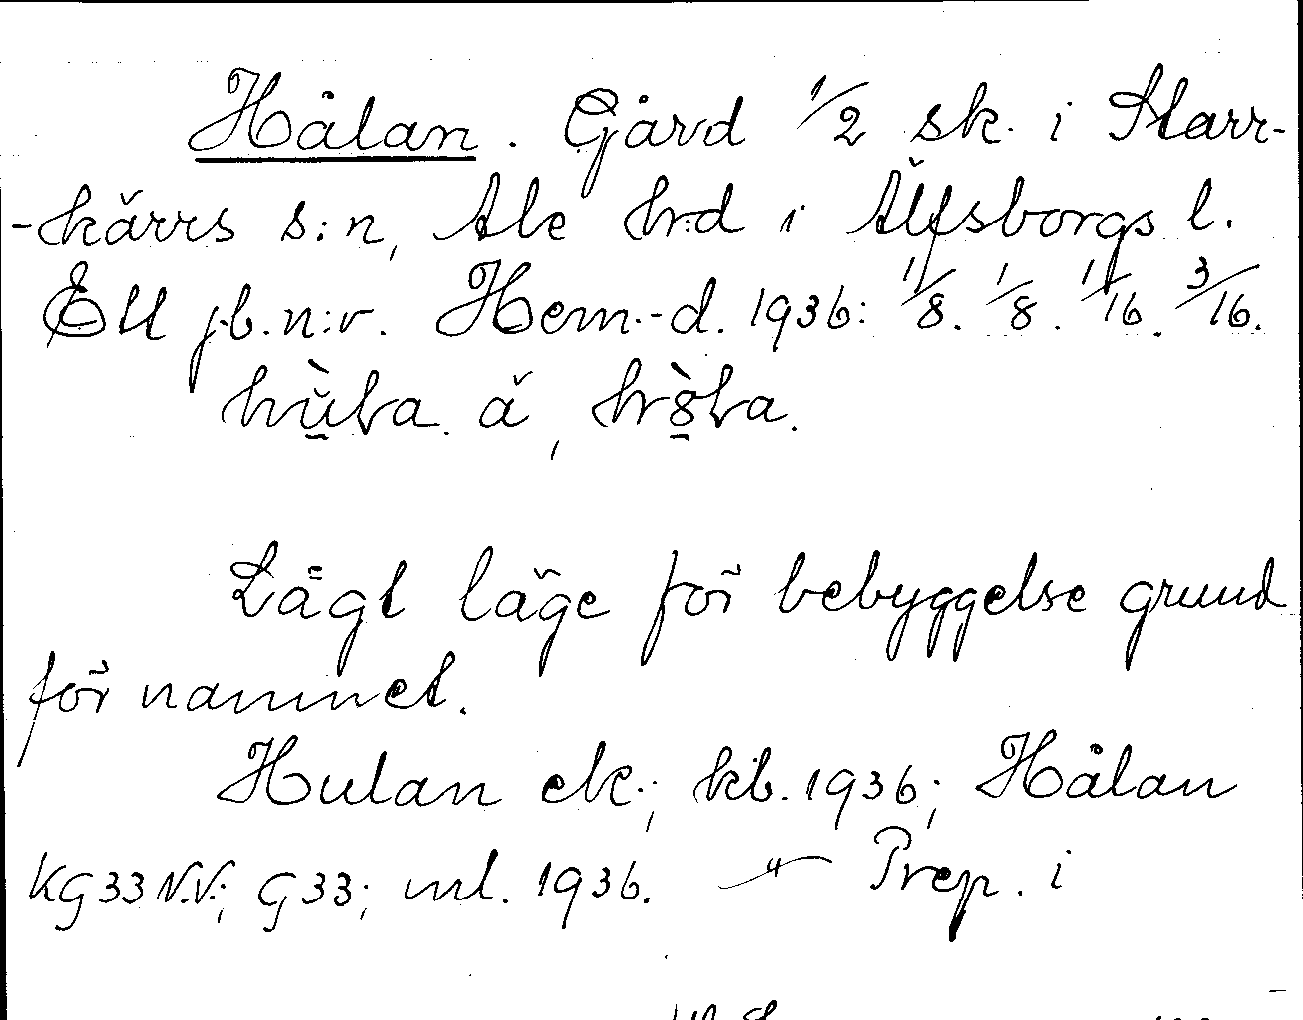 Hålan. Gård 1/2 sk. i Starr-
-kärrs s:n, Ale hrd i Älfsborgs l.
Ett jb.n:r. Hem.-d. 1936: 1/8. 1/8. 1/16. 3/16.
Lågt läge för bebyggelse grund
för namnet.
Hulan ek.; kb. 1936; Hålan
KG33 N.V.; G33; ml. 1936. — " — Prep. i